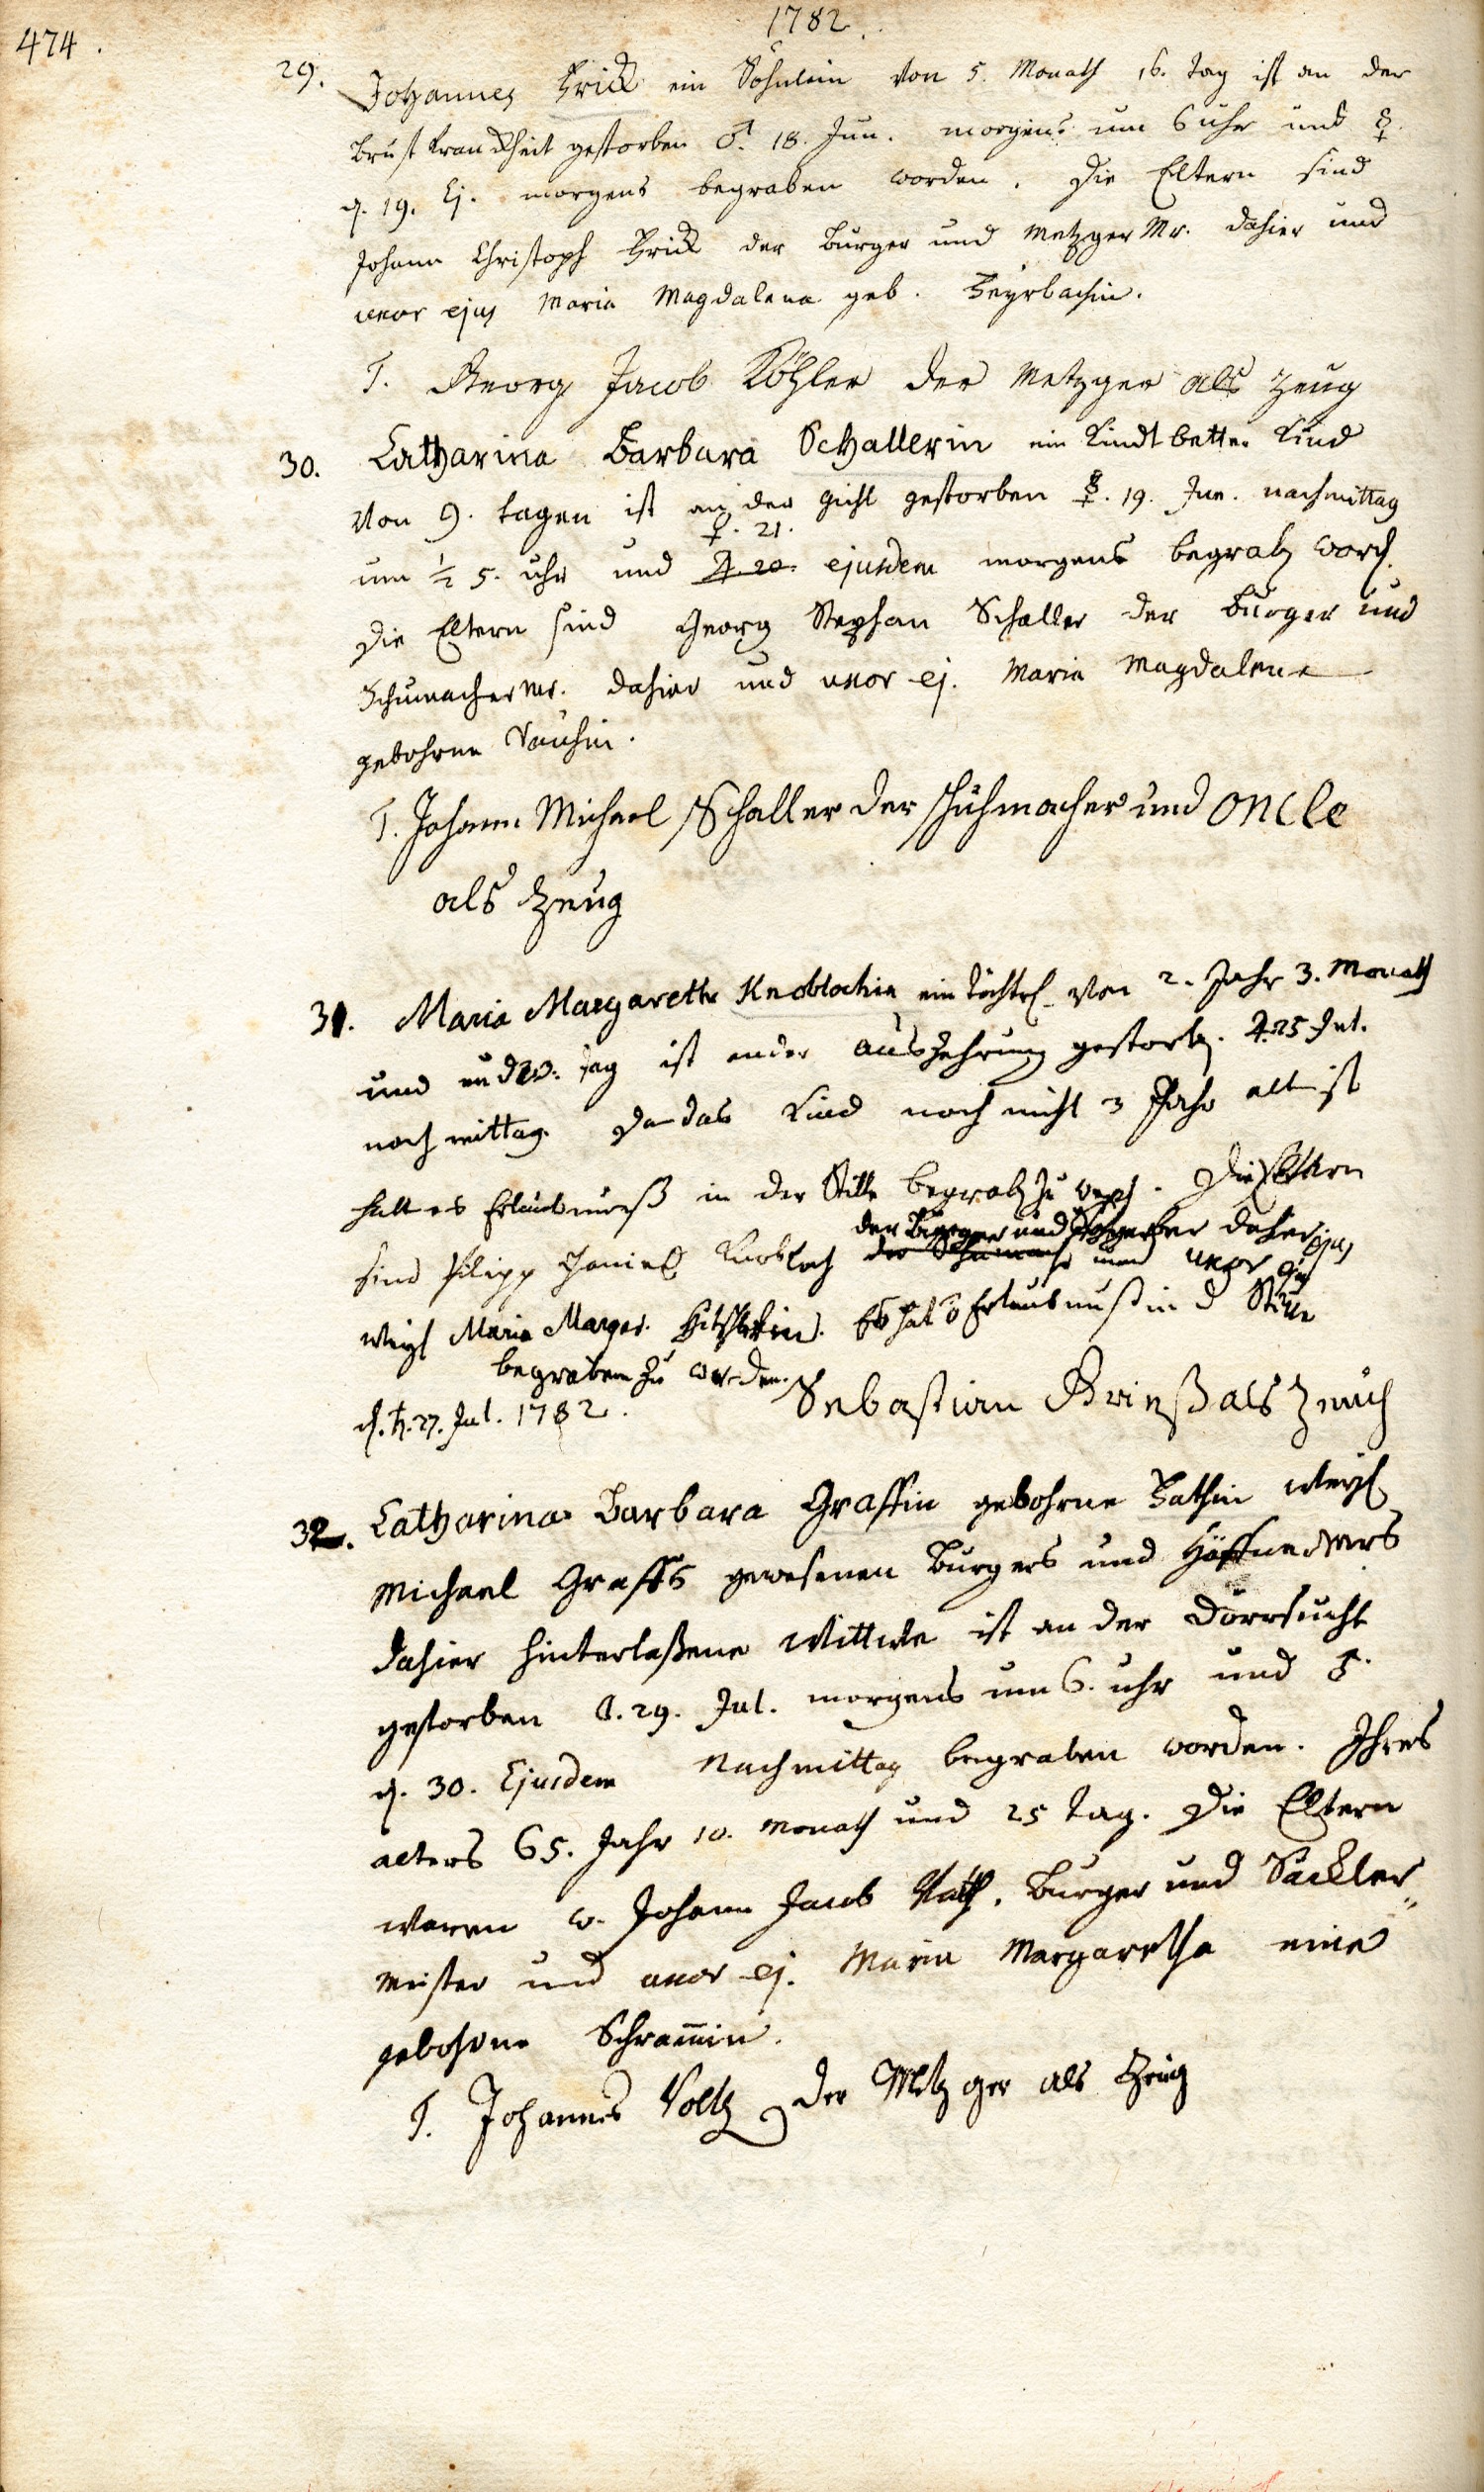 1782.
474.
29. Johannes Frick ein Söhnlein von 5. Monath 16. tag ist an der
Brust kranckheit gestorben ♂. 18. Jun. morgens um 6 uhr und ☿
d. 19. Ej. morgens begraben worden. Die Eltern sind
Johann Christoph Frick der Burger und Metzger Mr. dahier und
uxor ejus Maria Magdalena geb.
T. Georg Jacob Köhler der Metzger als Zeug
30. Catharina Barbara Schallerin ein Kindtbetter Kind
von 9. tagen ist an der gicht gestorben ☿. 19. Jun. nachmittag
♀. 21.
um ½ 5. uhr und ♃ 20. ejusdem morgens begrab word.
Die Eltern sind Georg Stephan Schaller der Burger und
Schumacher Mr. dahier und uxor ej. Maria Magdalena
gebohrne
T. Johann Michael Schaller der schuhmacher und oncle
als Zeug
31. Maria Margaretha Knoblochin ein töchterl. von 2. Jahr 3. Monath
und tag ist an der auszehrung gestorb. ♃. 25 Jul.
nachmittag. Da das Kind noch nicht 3 Jahr alt ist
hatt es Erlaubnuß in der Stille begrab zu werd. Die Eltern
der Burger und dahier
sind Philipp Daniel Knobloch und uxor ejus
Maria Margar. Es hat d Erlaubnuß in d Stille
begraben zu werden.
d. ♄. 27. Jul. 1782. Sebastian Grieß als Zeuch
32. Catharina Barbara Graffin gebohrne Bathin weyl
Michael Graffs gewesenen Burgers und Häffner Mrs
dahier hinterlaßene Wittwe ist an der Dörrsucht
gestorben ☾. 29. Jul. morgens um 6. uhr und ♂.
d. 30. Ejusdem Nachmittag begraben worden. Ihres
alters 65. Jahr 10. Monath und 25 tag. Die Eltern
waren w. Johann Jacob Burger und Säckler
meister und uxor ej. Maria Margaretha eine
gebohrne Schram̄in.
T. Johannes Voltz der Metzger als Zeug